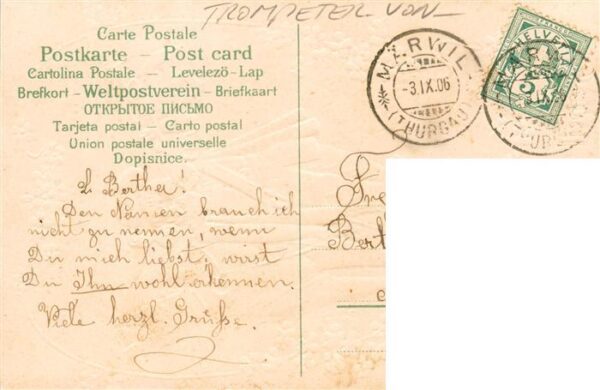 TROMPETER VON
Carte Postale
Postkarte – Post card
Cartolina Postale – Levelező-Lap
Brefkort – Weltpostverein – Briefkaart
ОТКРЫТОЕ ПИСЬМО
Tarjeta postal – Carto postal
Union postale universelle
Dopisnice.
MÄRWIL
-3.IX.06
(THURGAU)
HELVETIA
5
L. Bertha!
Den Namen brauch ich
nicht zu nennen, wenn
Du mich liebst, wirst
Du Ihn wohl erkennen.
Viele herzl. Grüsse.